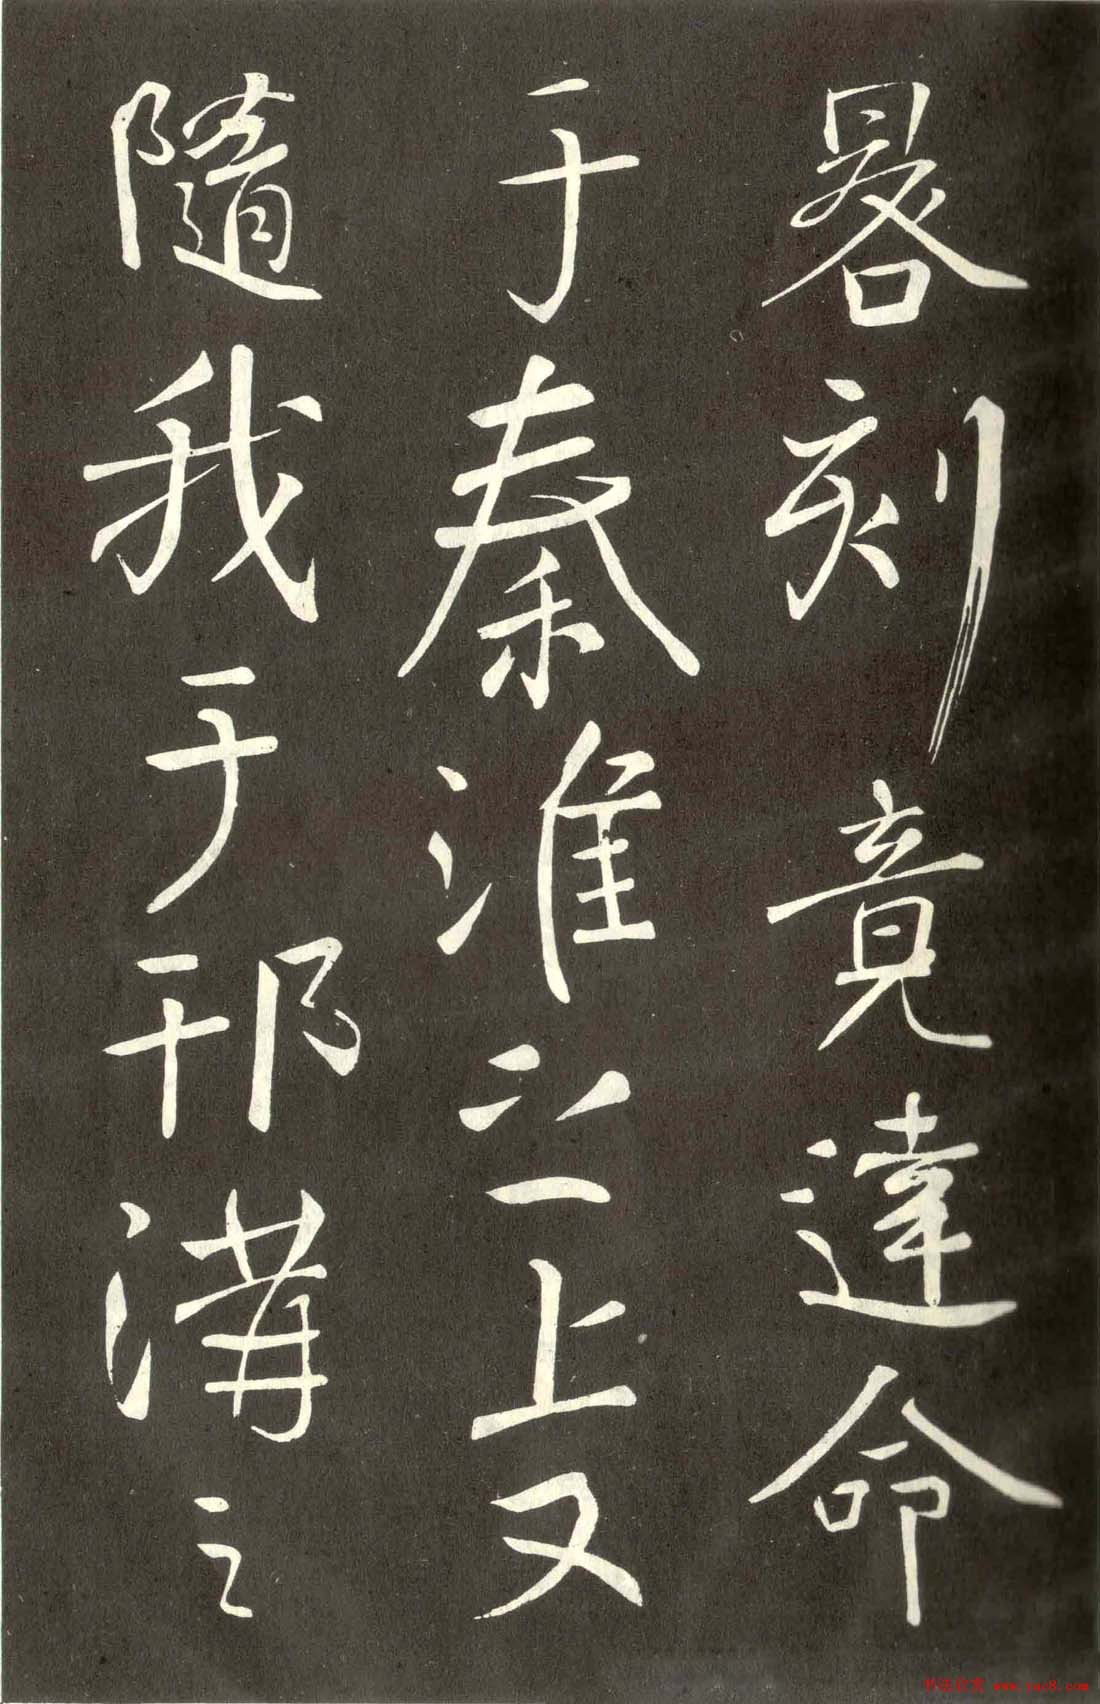 晷刻竟達命
于秦淮之上又
隨我于邗溝之
www.yac8.com